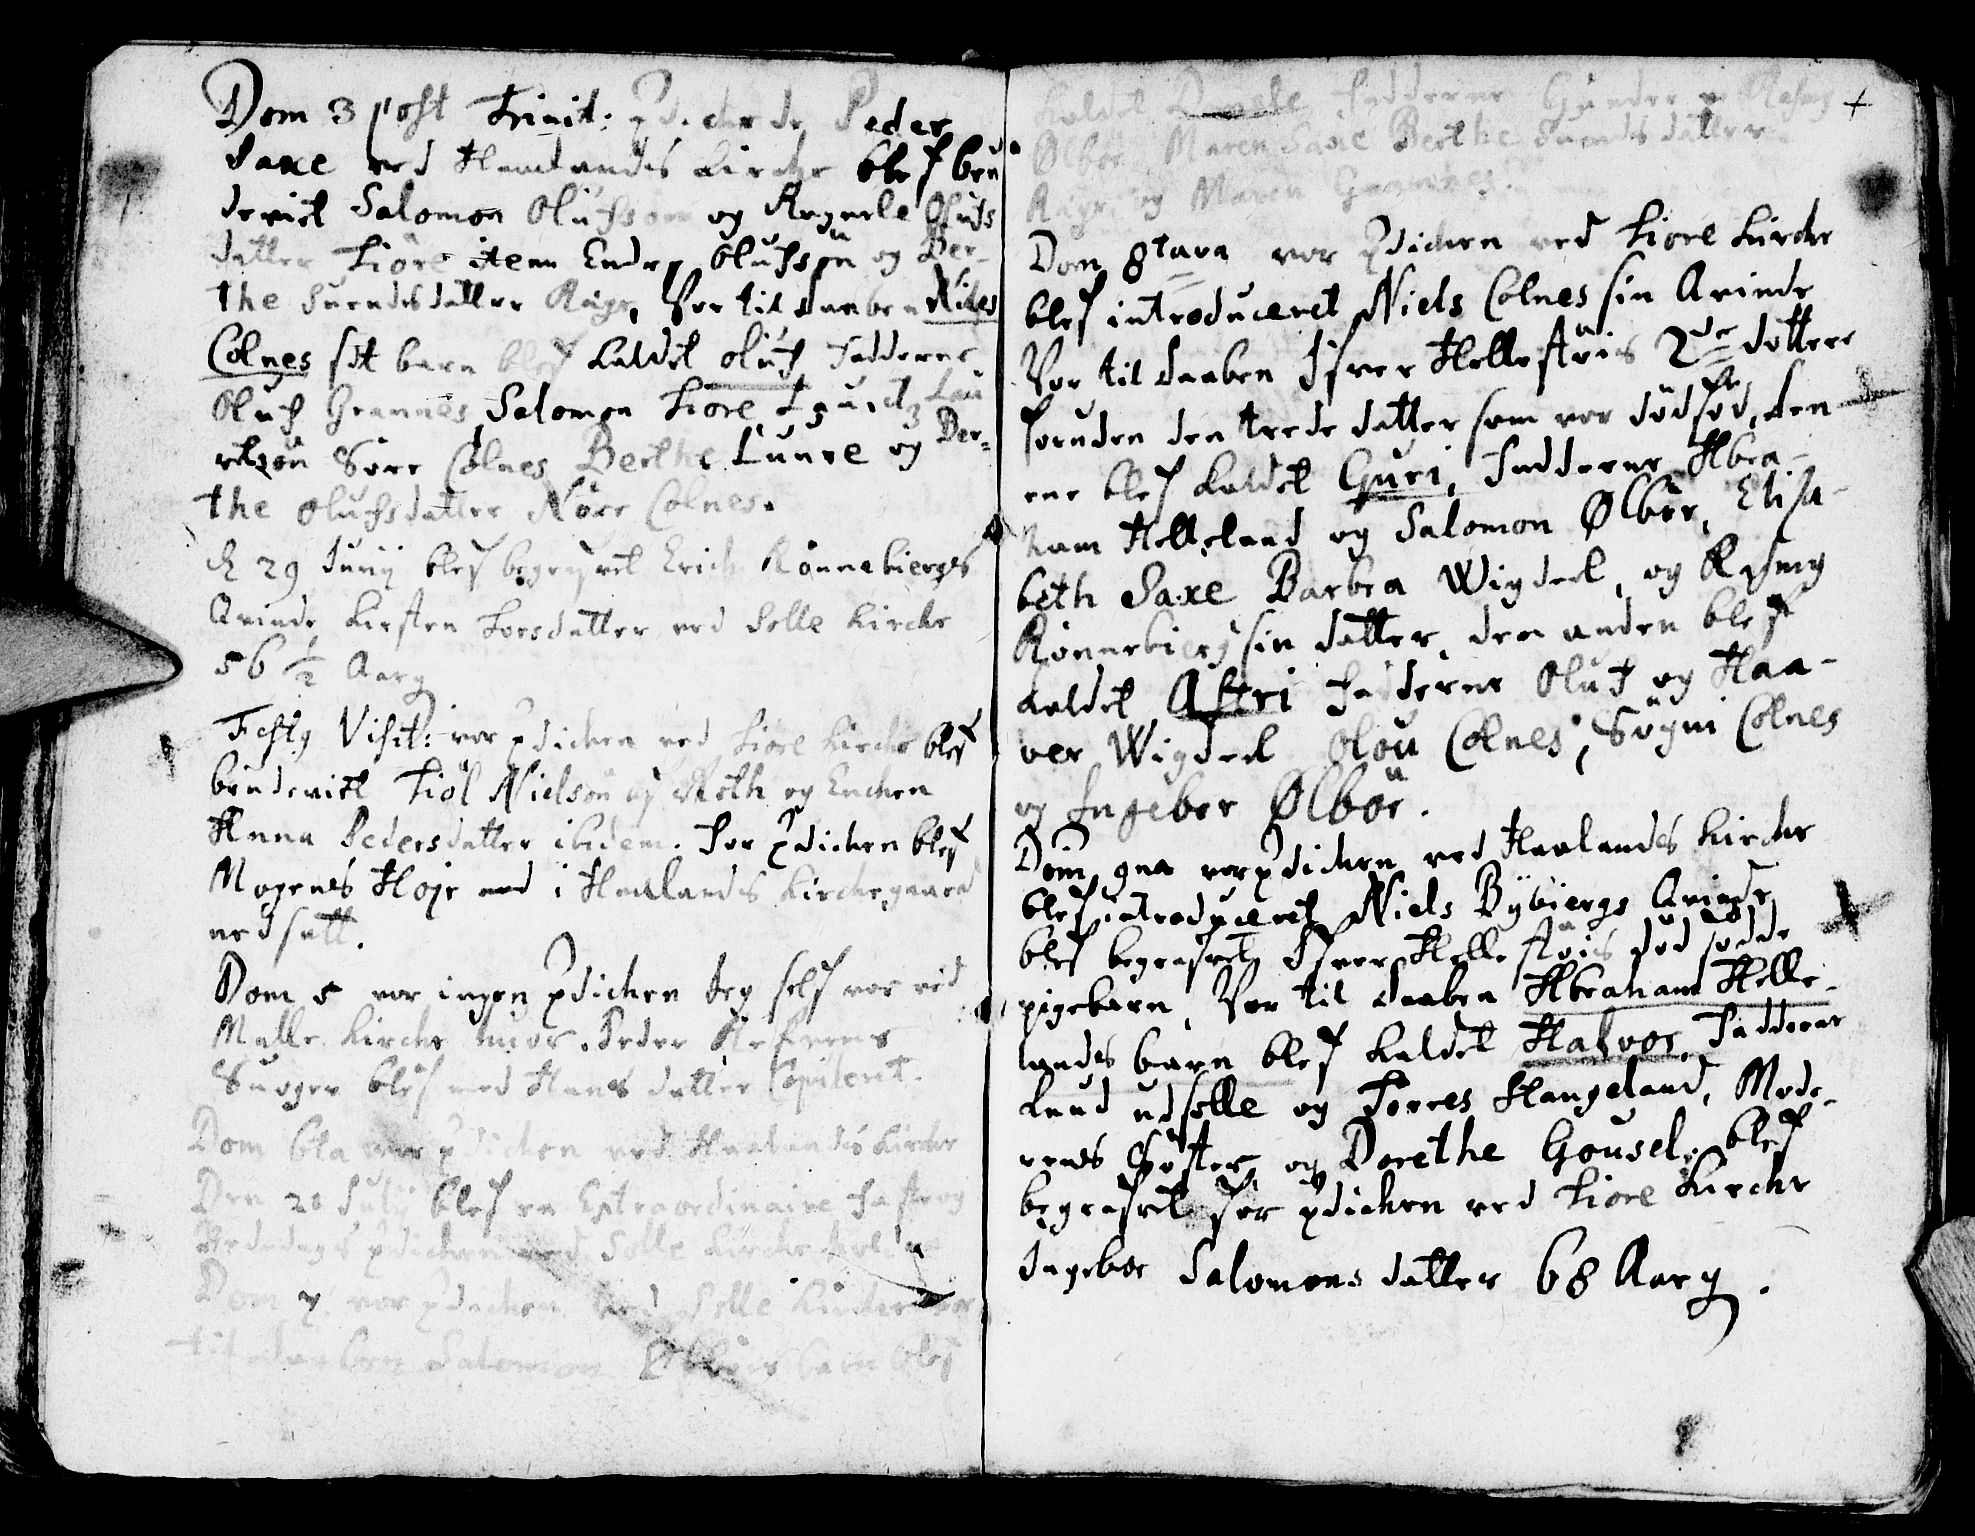 Dom 3 post Trinit: prdichede Peder
Saxe ved Haalandis Kirche blef bru
deviet Salomon Olufsson og Ragnele Olufs
datter Tiøre item Endre Olufssøn og Ber-
the Suendsdatter Ræge, Vor til daaben Niles
Colnes sit barn blef kaldet Oluf, Fadderne
Oluf Grannes, Salomon Tiore, Lauritz Lau
ritzøn Sørr Colnes Berthe Lunre og Ber-
the Olufsdatter Nørr Colnes.
d 29 Junij blef begrafvet Erich Rönnebiergs
Qvinde Kirsten Torsdatter ved Solle Kirche
56 ½ Aarg
Festo Visit: vor prdichen ved Tiore Kirche blef
brudeviet Tiøl Nielsøn og Enchen
Anna Pedersdatter ibidem. For prdichen blef
Mogens Høje ned i Haalandis Kirchegaard
nedsatt.
Dom 5 vor ingen prdichen Jeg self vor ved
Malle Kirche Peder
Svoger blef med Hans datter Copulerit.
Dom 6ta vor prdichen ved Haalandis Kirche
Den 21 Julij blef en Extraordinaire Faste og
Bededags prdichen ved Solle Kirche holden
Dom 7 vor prdichen ved Solle Kirche vor
til daaben Salomon Ølbörs barn blef
kaldet Fadderne Gunder Rasmus
Ølbör, Maren Saxe Berthe Suendsdatter
Ræge, og Maren Grannes.
Dom 8tava vor prdichen ved Tiore Kirche
blef introduceret Niels Colnes sin Qvinde
Vor til daaben Ifver Hellestøis 2de døttere
foruden den trede datter som vor dødføed, den
ene blef kaldet Guri, Fadderne Abra-
ham Helleland og Salomon Ølbör, Elisa-
beth Saxe Barbra Wigdeel, og Rasmus
Rønnebierg sin datter, den anden blef
kaldet Astri Fadderne Oluf og Haa-
ver Wigdeel Olou Colnes, Søgni Colnes
og Ingebor Ølbör.
Dom 9na vor prdichen ved Haalandis Kirche
blef introduceret Niels Bybiergs Qvinde
blef begrafvet Ifver Hellestøis død fødde
pigebarn, Vor til daaben Abraham Helle-
lands barn blef kaldet Halvor, Fadderne
Knud udsolle og Torres Haugeland, Mode-
rens Syster, og Dorethe Gousel. blef
begrafvet før prdichen ved Tiore Kirche
Ingebor Salomons datter 68 Aarg.